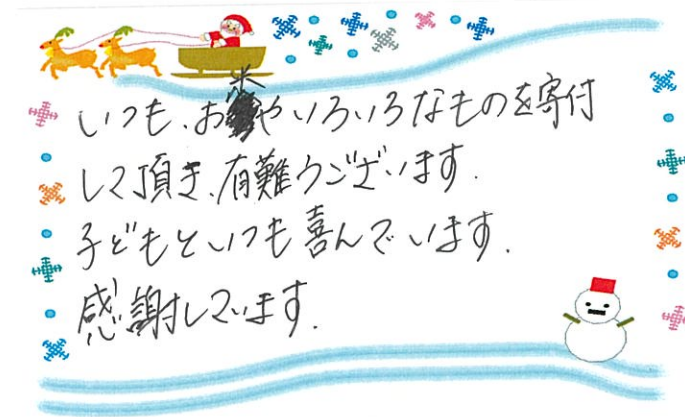 いつも、お米やいろいろなものを寄付
して頂き、有難うございます.
子どもといつも喜んでいます.
感謝しています.